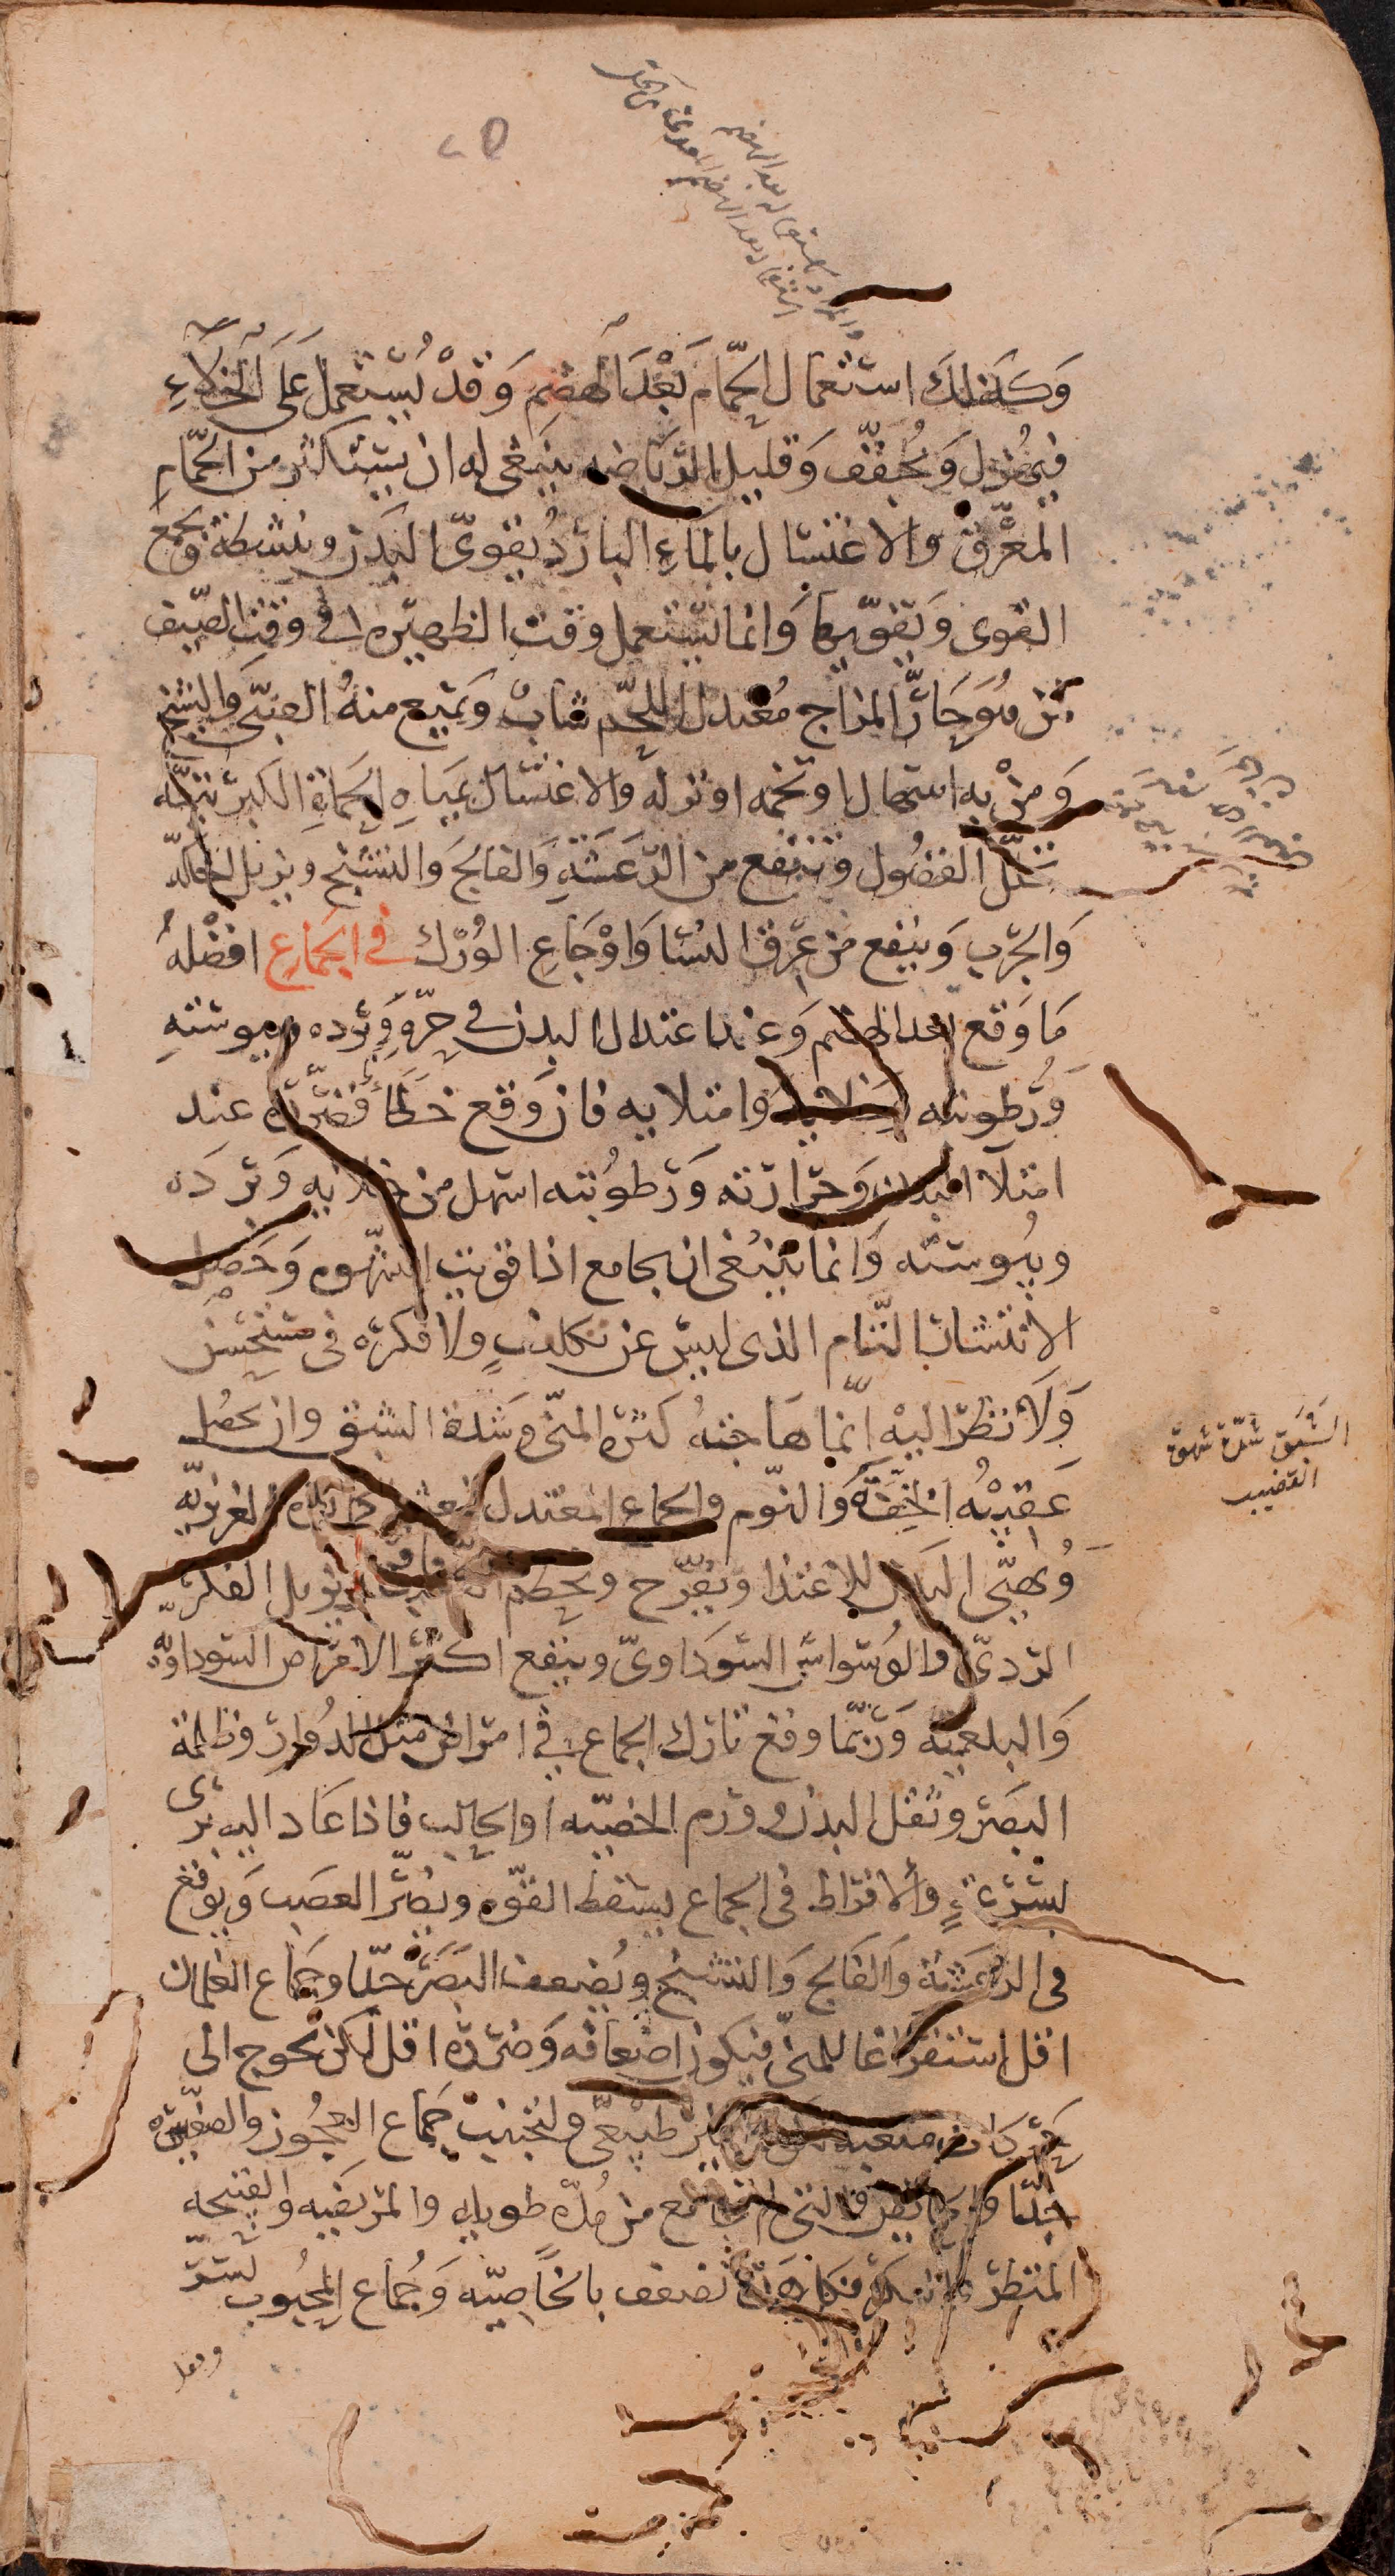 وَكَذلكَ استعمال الحمّام بَعْدَ الهضم وَقدْ يُستعمل عَلَى الخلاءِ
فيهُزل وَيُجفّف وَقليل الرّيَاضه ينبَغى له ان يستكثر من الحمّامِ
المعّرق والاغتسال بالماءِ البارد يُقوىّ البَدن وينشطه ويجمع
القوى وَيقوّيها وَانما يستعمل وقت الظهيره فى وقت الصّيف
من هُوَ حَارّ المزاج مُعتدل اللحم شاب وَيمنع منهُ الصبىّ وَالشيخ
وَمنْ به اسهال او تخمه او نزله والاغتسال بميَاهِ الحَماة الكبريتيّه
تحلّل الفضُول وتنفع من الرّعشةِ وَالفالجَ وَالتشنج ويزيل الحكّه
وَالجرَب وَينفع من عِرق النسَا وَاوْجَاعِ الوُرْك فى الجمَاع افضْلهُ
مَا وَقع بعد الهضم وَعند اعتدال البدن فى حِرّهِ وَبَرده ويبوسته
وَرُطوبته وَخلائه وَامتلايه فان وَقع خطَأ فضَررهُ عند
امتلآ البدن وَحرَارته وَرطوُبته اسهل من خلايه وَبردَه
ويبُوسته وَانما ينبَغى ان يجامع اذا قويت الشهوه وَحَصل
الانتشار التّام الذى ليس عن تكلفٍ ولا فكره فى مستحسن
وَلَا نظر اليهْ انّما هَاجتهُ كثرة المنّى وَشدة الشبق وان يحصُل
عَقيبهُ الخِفّةُ وَالنّوم والجماع المعتدل ينعش الحرارة الغريزيّه
وَيُهيّى البَدن للاغتذا ويُفرّح ويحطم الغضب ويزيل الفكر
الردىّ والوُسَواس السّوَداوىّ وينفع اكثر الامرَاض السّوداويّه
وَالبلغميّه وَربّما وقع تارك الجماع فى امرَاض مثل الدُوار وظلمة
البصَر وثقل البدن وورم الخصيّه او الحالب فاذا عَاد اليه برى
بسُرعَةٍ وَالافرَاط فى الجماع يسقط القوّه ويضرّ العصَب وَيوقع
فى الرعشة وَالفَالج وَالتشنج ويُضعف البَصَر جدّا وجمَاع الغلمان
اقل استفرَاغا للمنىّ فيكون اضعافه وَضرَره اقل لكن يحوج الى
حَرَكات متعبه غير طبيعىّ ولتجنب جمَاع العجُوز والصغيره
جدّا وَالحائض والتى لم تجامع من مُدّه طويله والمريضه والقبيحه
المنظر والبكر فكل هَذه تضعف بالخاصيّه وَجُماع المحبُوب يسرّ
الشبق شدّة شهوة
القضيب